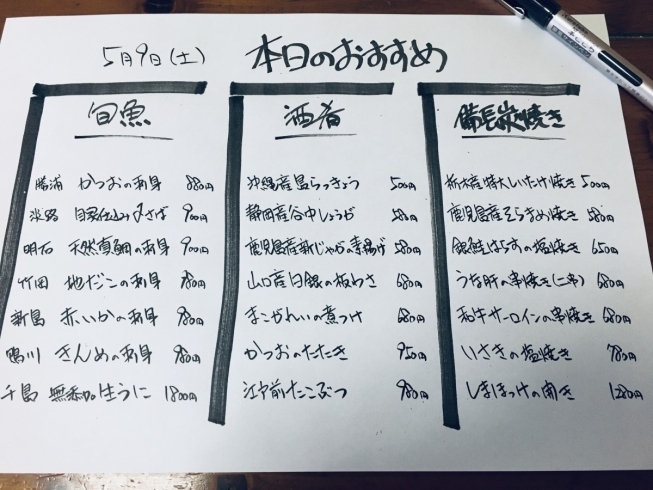 5月9日(土)
本日のおすすめ
旬魚
勝浦 かつおの刺身 880円
淡路 自家仕込み〆さば 900円
明石 天然真鯛の刺身 900円
竹岡 地だこの刺身 980円
新島 赤いかの刺身 980円
鴨川 きんめの刺身 980円
千島 無添加生うに 1800円
酒肴
沖縄産島らっきょう 500円
静岡産谷中しょうが 580円
鹿児島産新じゃがの素揚げ 580円
山口産白銀の板わさ 680円
まこがれいの煮つけ 680円
かつおのたたき 950円
江戸前たこぶつ 980円
備長炭焼き
栃木産特大しいたけ焼き 500円
鹿児島産そらまめ焼き 580円
銀鮭はらすの塩焼き 650円
うなぎ肝の串焼き(二本) 680円
和牛サーロインの串焼き 680円
いさきの塩焼き 780円
しまほっけの開き 1280円